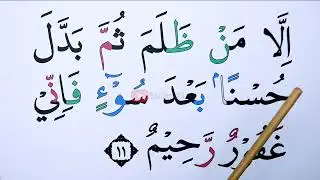 اِلَّا مَنْ ظَلَمَ ثُمَّ بَدَّلَ
حُسْنًاۢ بَعْدَ سُوْٓءٍ فَاِنِّيْ
غَفُوْرٌ رَّحِيْمٌ ١١